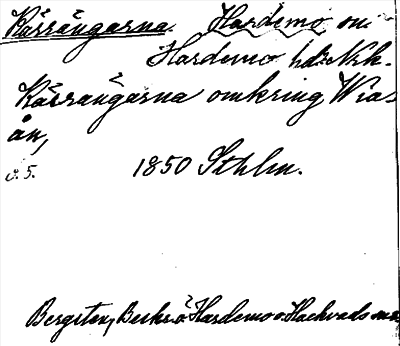 Kärrängarna. Hardemo sn
Hardemo hd: Nrk.
Kärrängarna omkring Wia-
ån,
s. 5. 1850 Sthlm.
Bergsten, Beskr. ö. Hardemo o. Hackvads snr